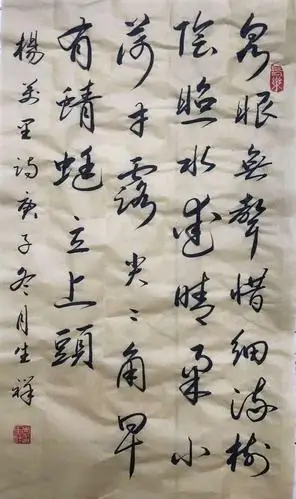 泉眼無聲惜細流樹
陰照水愛晴柔小
荷才露尖〻角早
有蜻蜓立上頭
楊萬里詩庚子冬月生祥